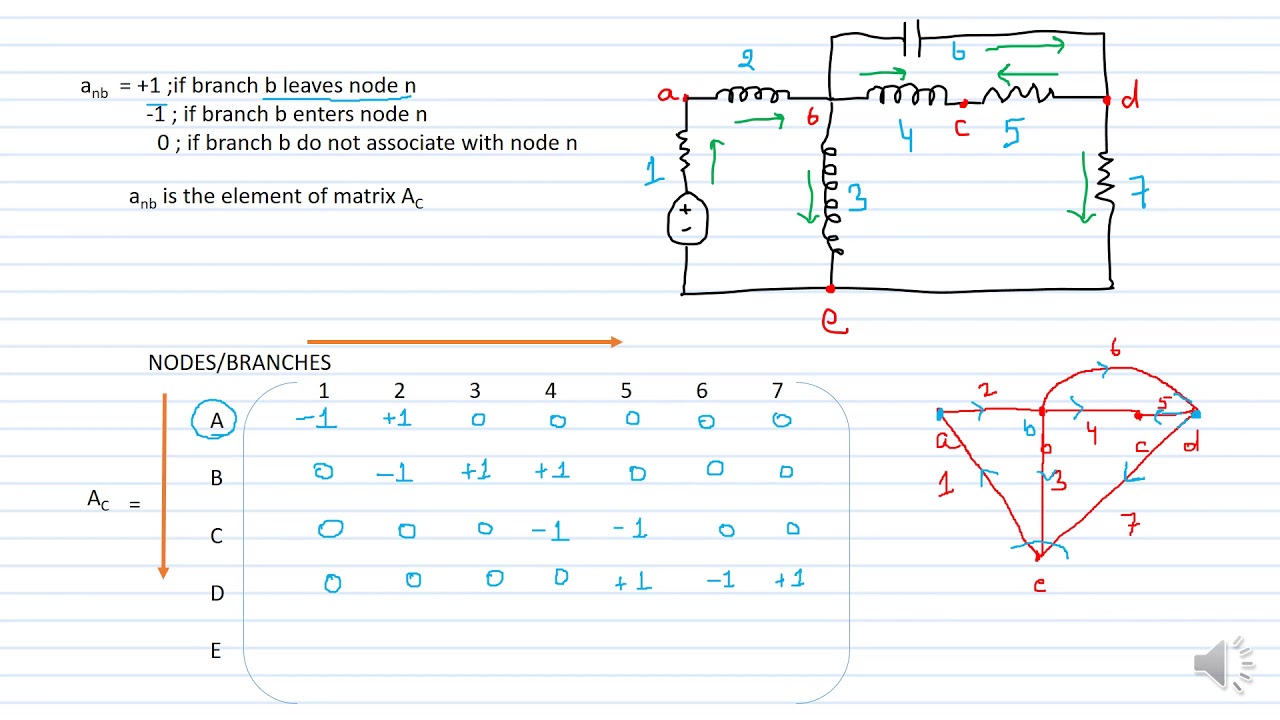 aₙb = +1 ;if branch b leaves node n
-1 ; if branch b enters node n
0 ; if branch b do not associate with node n
aₙb is the element of matrix A_C
a 2 6 4 c 5 6 d
1 + - 3 7
e
NODES/BRANCHES
1 2 3 4 5 6 7
A -1 +1 0 0 0 0 0
B 0 -1 +1 +1 0 0 0
A_C =
C 0 0 0 -1 -1 0 0
D 0 0 0 0 +1 -1 +1
E
6
2 5
a b 4 c d
b
1 3
7
e